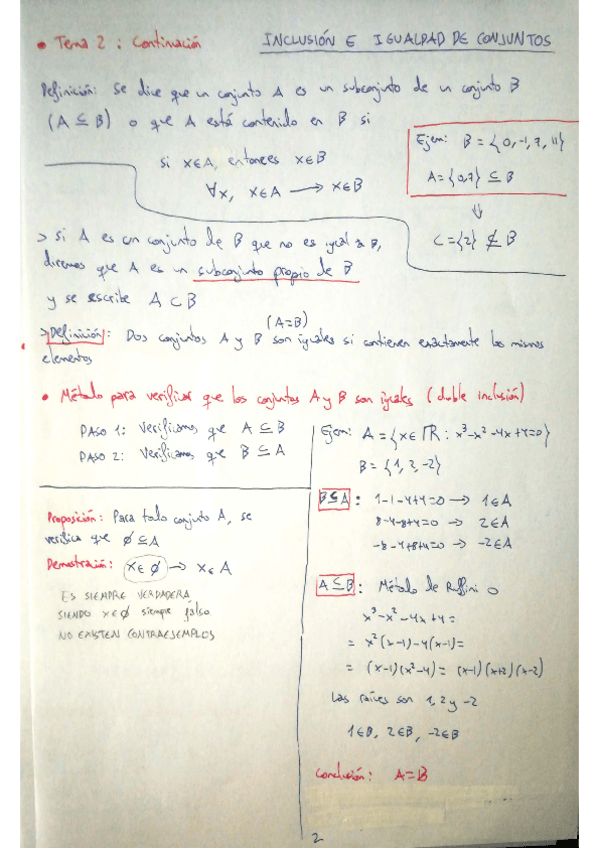 • Tema 2 : Continuación
INCLUSIÓN E IGUALDAD DE CONJUNTOS
Definición: Se dice que un conjunto A es un subconjunto de un conjunto B
(A ⊆ B) o que A está contenido en B si
si x∈A, entonces x∈B
∀x, x∈A → x∈B
Ejem: B = {0,-1,7,11}
A={0,7} ⊆ B
⇓
C={2} ⊈ B
> Si A es un conjunto de B que no es igual a B,
diremos que A es un subconjunto propio de B
y se escribe A ⊂ B
(A=B)
> Definición: Dos conjuntos A y B son iguales si contienen exactamente los mismos
elementos
• Método para verificar que los conjuntos A y B son iguales (doble inclusión)
PASO 1: Verificamos que A ⊆ B
PASO 2: Verificamos que B ⊆ A
Ejem: A = {x∈ℝ : x³-x²-4x+4=0}
B = {1, 2, -2}
B⊆A : 1-1-4+4=0 → 1∈A
8-4-8+4=0 → 2∈A
-8-4+8+4=0 → -2∈A
A⊆B : Método de Ruffini o
x³-x²-4x+4=
= x²(x-1)-4(x-1)=
= (x-1)(x²-4) = (x-1)(x+2)(x-2)
Las raíces son 1, 2 y -2
1∈B, 2∈B, -2∈B
Conclusión: A=B
Proposición: Para todo conjunto A, se
verifica que ∅⊆A
Demostración: x∈∅ → x∈A
ES SIEMPRE VERDADERA
SIENDO x∈∅ siempre falso
NO EXISTEN CONTRAEJEMPLOS
2